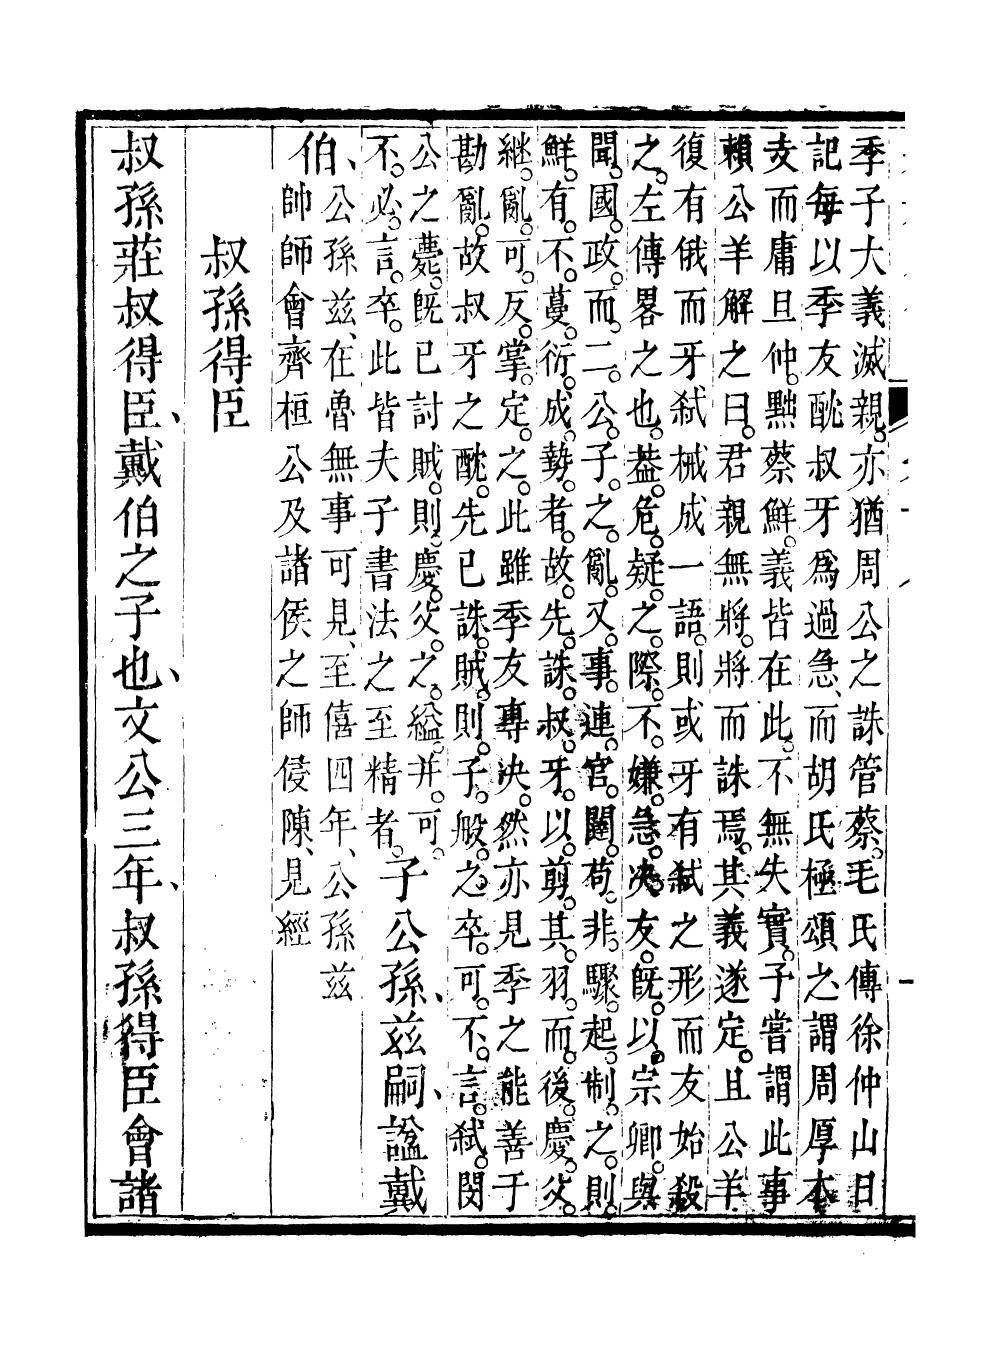 季子大義滅親亦猶周公之誅管蔡毛氏傳徐仲山日
記每以季友酖叔牙爲過急而胡氏極頌之謂周厚本
支而庸旦仲黜蔡鮮義皆在此不無失實予嘗謂此事
賴公羊解之曰君親無將將而誅焉其義遂定且公羊
復有俄而牙弒械成一語則或牙有弒之形而友始殺
之左傳畧之也葢危疑之際不嫌急决友旣以宗卿與
聞國政而二公子之亂又事連宮闈苟非驟起制之則
鮮有不蔓衍成勢者故先誅叔牙以剪其羽而後慶父
継亂可反掌定之此雖季友專决然亦見季之能善于
勘亂故叔牙之酖先已誅賊則子般之卒可不言弒閔
公之薨旣已討賊則慶父之縊并可
不必言卒此皆夫子書法之至精者
子公孫兹嗣諡戴
伯
公孫兹在魯無事可見至僖四年公孫兹
帥師會齊桓公及諸侯之師侵陳見經
叔孫得臣
叔孫莊叔得臣戴伯之子也文公三年叔孫得臣會諸